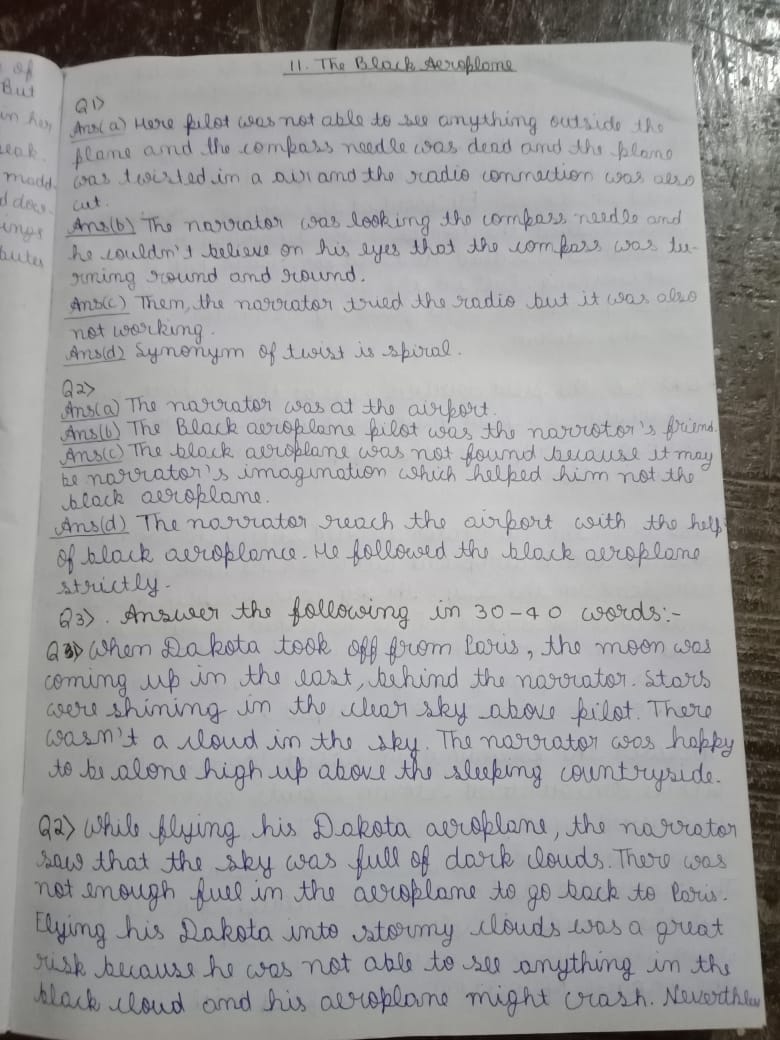 of
But
in her
eak.
madd.
d does.
ings
butes
11. The Black Aeroplane
Q1>
Ans(a) Here pilot was not able to see anything outside the
plane and the compass needle was dead and the plane
was twisted in a air and the radio connection was also
cut.
Ans(b) The narrator was looking the compass needle and
he couldn't believe on his eyes that the compass was tu-
rning round and round.
Ans(c) Them, the narrator tried the radio but it was also
not working.
Ans(d) Synonym of twist is spiral.
Q2>
Ans(a) The narrator was at the airport.
Ans(b) The Black aeroplane pilot was the narrotor's friend.
Ans(c) The black aeroplane was not found because it may
be narrator's imagination which helped him not the
black aeroplane.
Ans(d) The narrator reach the airport with the help
of black aeroplance. He followed the black aeroplane
strictly.
Q3>. Answer the following in 30-40 words:-
Q1> When Dakota took off from Paris, the moon was
coming up in the east, behind the narrator. Stars
were shining in the clear sky above pilot. There
wasn't a cloud in the sky. The narrator was happy
to be alone high up above the sleeping countryside.
Q2> While flying his Dakota aeroplane, the narrator
saw that the sky was full of dark clouds. There was
not enough fuel in the aeroplane to go back to Paris.
Flying his Dakota into stormy clouds was a great
risk because he was not able to see anything in the
black cloud and his aeroplane might crash. Neverthless